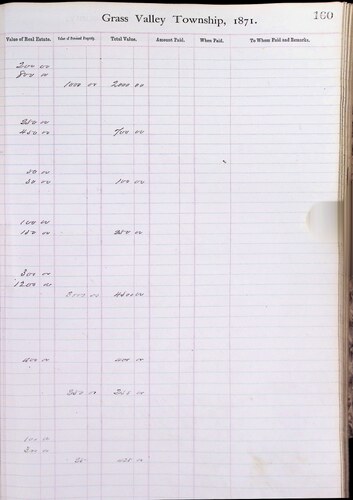 Grass Valley Township, 1871.
160
Value of Real Estate. Value of Personal Property. Total Value. Amount Paid. When Paid. To Whom Paid and Remarks.
200 00
800 00
1000 00 2000 00
250 00
450 00 700 00
50 00
50 00 100 00
100 00
150 00 250 00
300 00
1200 00
3000 00 4500 00
100 00